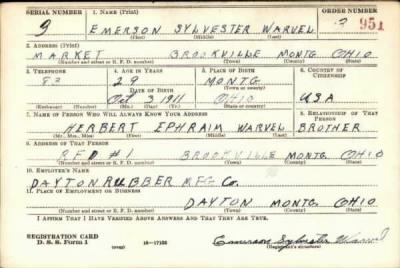 SERIAL NUMBER 1. NAME (Print) ORDER NUMBER
9 EMERSON SYLVESTER WARVEL 951
(First) (Middle) (Last)
2. ADDRESS (Print)
MARKET BROOKVILLE MONTG. OHIO
(Number and street or R. F. D. number) (Town) (County) (State)
3. TELEPHONE 4. AGE IN YEARS 5. PLACE OF BIRTH 6. COUNTRY OF CITIZENSHIP
83 28 MONTG
DATE OF BIRTH (Town or county)
Oct 3 1911 OHIO U.S.A
(Exchange) (Number) (Mo.) (Day) (Yr.) (State or country)
7. NAME OF PERSON WHO WILL ALWAYS KNOW YOUR ADDRESS 8. RELATIONSHIP OF THAT PERSON
HERBERT EPHRAIM WARVEL BROTHER
(Mr., Mrs., Miss) (First) (Middle) (Last)
9. ADDRESS OF THAT PERSON
RFD #1 BROOKVILLE MONTG. OHIO
(Number and street or R. F. D. number) (Town) (County) (State)
10. EMPLOYER'S NAME
DAYTON RUBBER MFG Co.
11. PLACE OF EMPLOYMENT OR BUSINESS
DAYTON MONTG. OHIO
(Number and street or R. F. D. number) (Town) (County) (State)
I AFFIRM THAT I HAVE VERIFIED ABOVE ANSWERS AND THAT THEY ARE TRUE.
REGISTRATION CARD
D. S. S. Form 1 (over) 16—17105 Emerson Sylvester Warvel
(Registrant's signature)